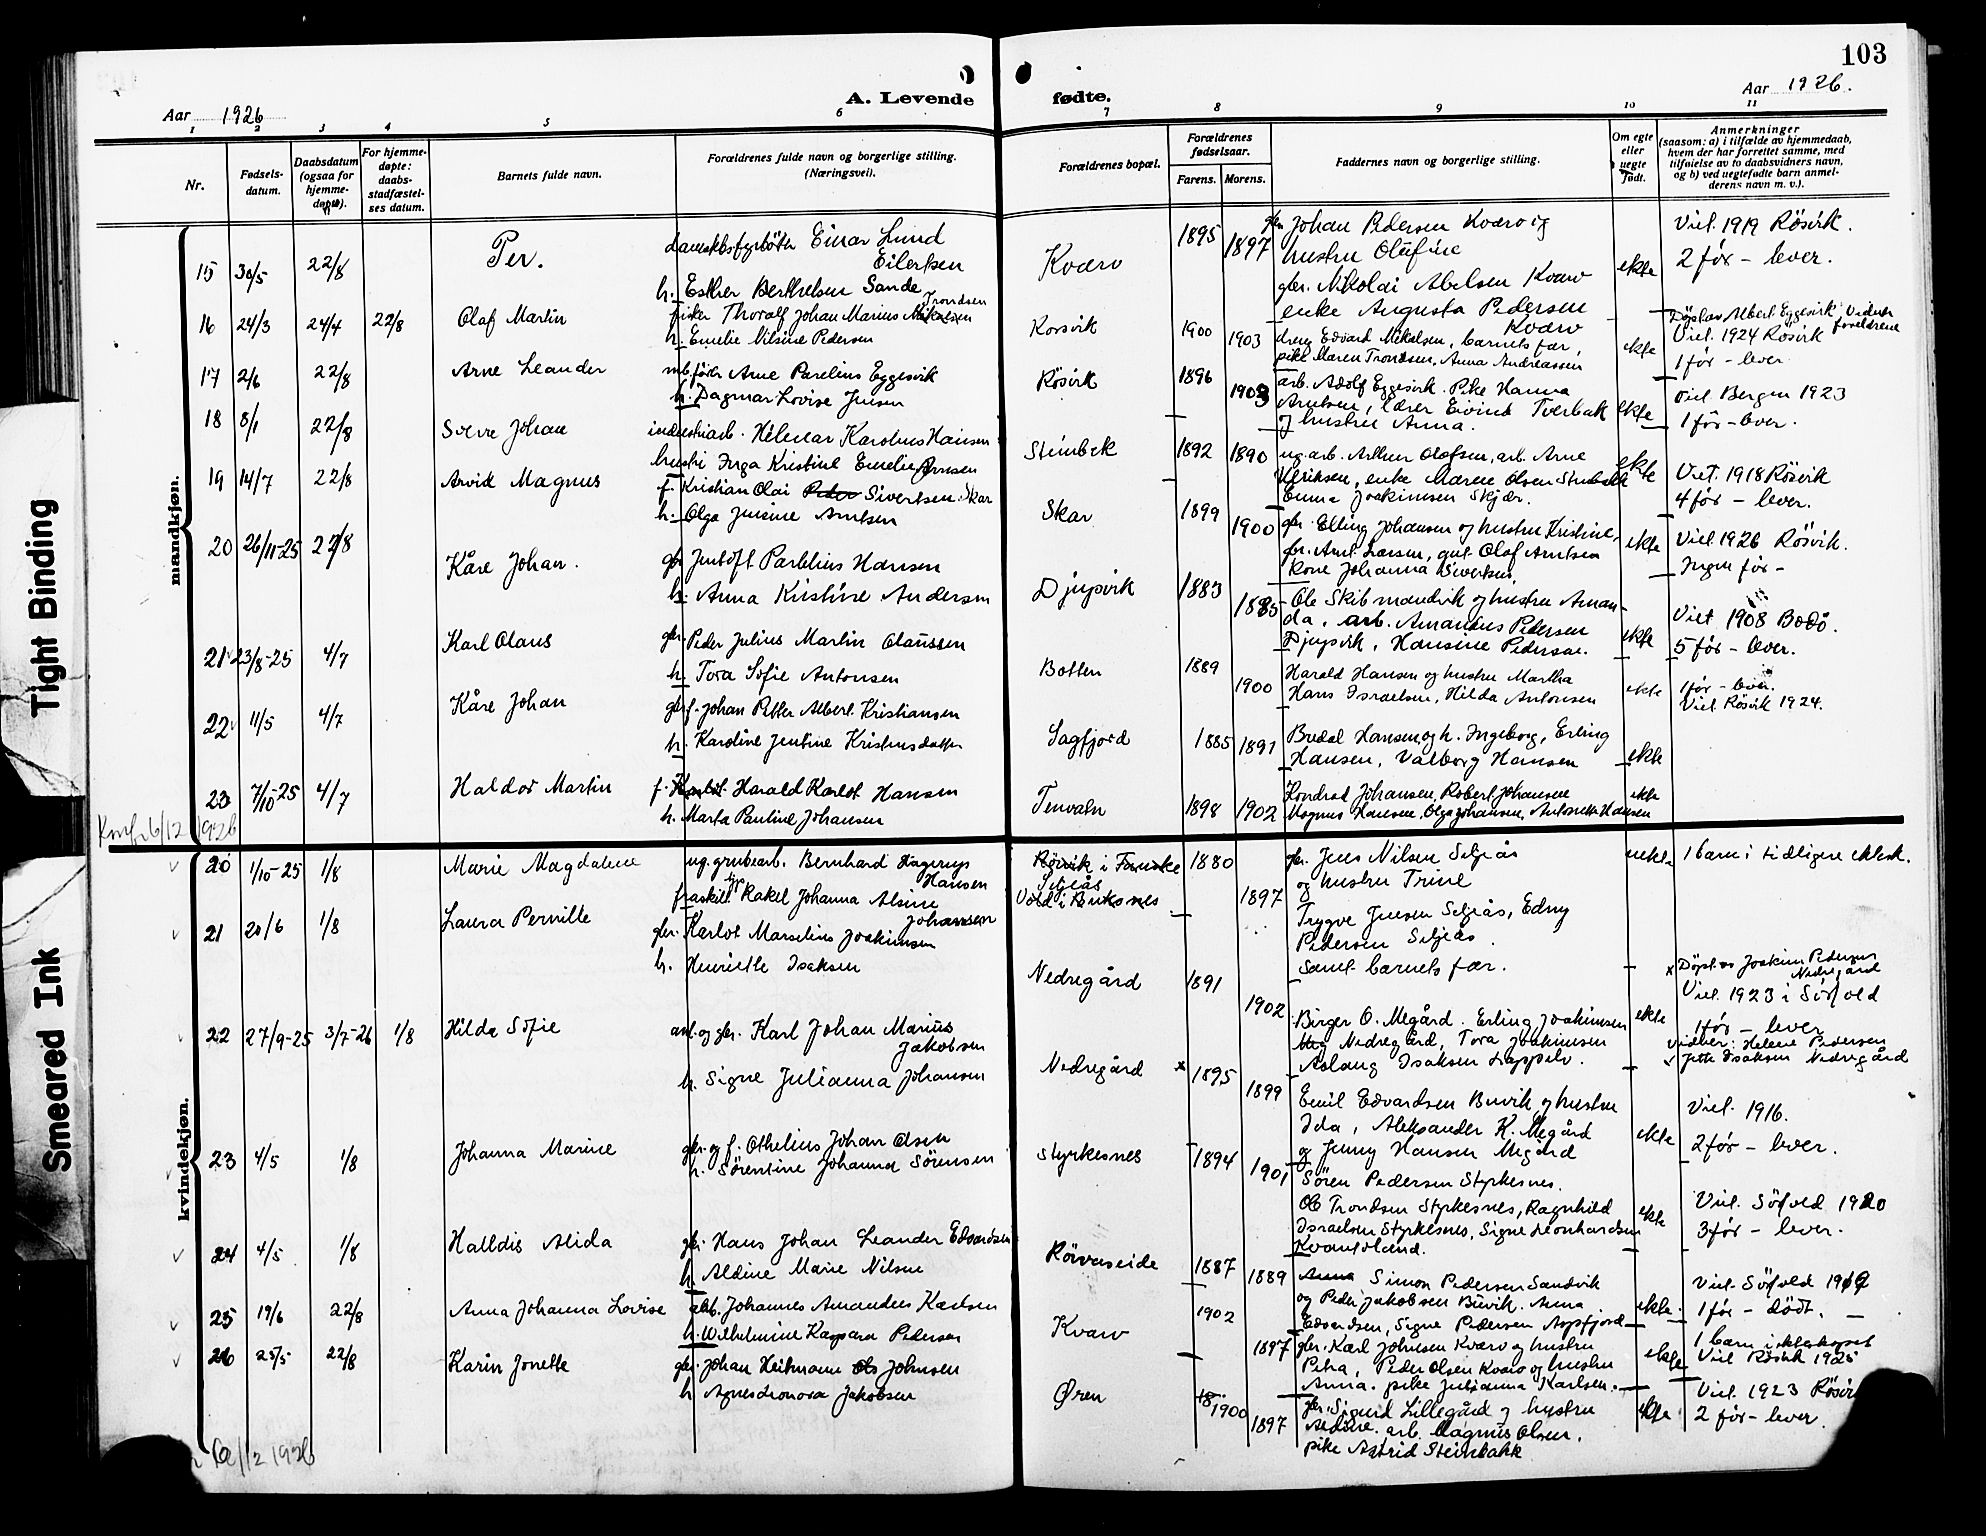 103
A. Levende fødte.
Aar 1926
Aar 1926.
1 2 3 4 5 6 7 8 9 10 11
Nr.
Fødsels-
datum.
Daabsdatum
(ogsaa for
hjemme-
døpte).
For hjemme-
døpte:
daabs-
stadfæstel-
ses datum.
Barnets fulde navn.
Forældrenes fulde navn og borgerlige stilling.
(Næringsvei).
Forældrenes bopæl.
Forældrenes
fødselsaar.
Farens. Morens.
Faddernes navn og borgerlige stilling.
Om egte
eller
uegte
født.
Anmerkninger
(saasom: a) i tilfælde av hjemmedaab,
hvem der har forrettet samme, med
tilføielse av to daabsvidners navn,
og b) ved uegtefødte barn anmel-
derens navn m. v.).
mandkjøn.
15 30/5 22/8 Per.
Einar Lund
Eilertsen
h. Esther Berthelsen Sande
Kvarv 1895 1897
gbr. Johan Pedersen Kvarvig
hustru Olufine
gbr. Nikolai Abelsen Kvarv
enke Augusta Pedersen
Kvarv
ekte
Viet 1919 Rösvik.
2 för - lever.
16 24/3 24/4 22/8 Olaf Martin
fisker Thoralf Johan Marius Mikalsen
Trondsen
h. Emelie Nilsine Pedersen
Korsvik 1900 1903
dreng Edvard Mikalsen, barnets far,
pike Maren Trondsen, Anna Andreassen
ekte
Döpt av Albert Eggesvik. Vidner
foreldrene
Viet 1924 Rösvik
1 för - lever
17 2/6 22/8 Arne Leander
Arne Parelius Eggesvik
h. Dagmar Lovise Jensen
Rösvik 1896 1903
arb. Adolf Eggesvik. Pike Hanna
Arntsen, lærer Eivind Tverbak
og hustru Anna.
ekte
Viet Bergen 1923
1 för - lever.
18 8/1 22/8 Sverre Johan
industriarb. Hilmar Karolius Hansen
hustru Inga Kristine Emelie Jensen
Steinbak 1892 1890
ug. arb. Arthur Olofsen, arb. Arne
Ulriksen, enke Marene Olsen Steinbakk
Emma Joakimsen Skjær.
ekte
Viet 1918 Rösvik
4 för - lever.
19 14/7 22/8 Arvid Magnus
f. Kristian Olai Peder Sivertsen Skar
h. Olga Jensine Arntsen
Skar 1899 1900
gbr. Elling Johansen og hustru Kristine,
gbr. Arnt Larsen, gut Olaf Arntsen
kone Johanna Sivertsen.
ekte
Viet 1926 Rösvik.
Ingen för -
20 26/11-25 22/8 Kåre Johan.
gbr Jentoft Parelius Hansen
h. Anna Kristine Andersen
Djupvik 1883 1885
Ole Skibmandvik og hustru Aman-
da, arb. Amandus Pedersen
Djupvik, Hansine Pedersen.
ekte
Viet 1908 Bodö.
5 för - lever.
21 23/8-25 4/7 Karl Olaus
gbr. Peder Julius Martin Olaussen
h. Tora Sofie Antonsen
Botten 1889 1900
Harald Hansen og hustru Martha
Hans Israelsen, Hilda Antonsen
ekte
1 för - lever.
Viet Rösvik 1924.
22 11/5 4/7 Kåre Johan
gbr f. Johan Petter Albert Kristiansen
h. Karoline Jentine Kristensdatter
Sagfjord 1885 1891
Bredal Hansen og h. Ingeborg, Erling
Hansen, Valborg Hansen
ekte
23 7/10-25 4/7 Haldor Martin
f. Harald Karlot Hansen
h. Marta Pauline Johansen
Tennvatn 1898 1902
Kondrad Johansen, Robert Johansen
Magnus Hansen, Olga Johansen, Antonette Hansen
ekte
Konf. 6/12 1926
kvindekjøn.
20 1/10-25 1/8 Marie Magdalene
ug. grubearb. Bernhard Hagerup
Hansen
fraskilt Rakel Johanna Alsine
Johansen
Rösvik i Fauske
Seljeås
Vold i Buksnes
1880 1897
gbr. Jens Nilsen Seljeås
og hustru Trine
Trygve Jensen Seljeås, Edny
Pedersen Seljeås.
Samt barnets far.
uekte 1 barn i tidligere ektesk.
21 20/6 1/8 Laura Pernille
gbr. Karlot Marselius Joakimsen
h. Henriette Isaksen
Nedregård 1891 1902
Birger O. Megård. Erling Joakimsen
Nedregård, Tora Joakimsen
Aslaug Isaksen Lappelv.
ekte
x Döpt av Joakim Pedersen
Nedregård
Viet 1923 i Sörfold
1 för - lever
Vidner: Helene Pedersen
Jette Isaksen Nedregård
22 27/9-25 3/7-26 1/8 Hilda Sofie
arb. og gbr. Karl Johan Marius
Jakobsen
h. Signe Julianna Johansen
Nedregård x 1895 1899
Emil Edvardsen Buvik og hustru
Ida, Aleksander K. Megård
og Jenny Hansen Megård
ekte
Viet 1916.
2 för - lever.
23 4/5 1/8 Johanna Marine
gbr. og f. Othelius Johan Olsen
h. Sörentine Johanna Sörensen
Styrkesnes 1894 1901
Sören Pedersen Styrkesnes.
Ole Trondsen Styrkesnes, Ragnhild
Israelsen Styrkesnes, Signe Leonhardsen
ekte
Viet Sörfold 1920
3 för - lever.
24 4/5 1/8 Halldis Alida
gbr. Hans Johan Leander Edvardsen
h. Aldine Marie Nilsen
1887 1889
Simon Pedersen Sandvik
og Peder Jakobsen Buvik. Anna
Edvardsen, Signe Pedersen Aspfjord
ekte
Viet Sörfold 1919
1 för - dödt.
25 19/6 22/8 Anna Johanna Lovise
arb. Johannes Amandus Karlsen
h. Wilhelmine Kaspara Pedersen
Kvarv 1902 1897
gbr. Karl Johnsen Kvarv og hustru
Petra, Peder Olsen Kvarv og hustru
Anna. pike Julianna Karlsen.
ekte
1 barn i ekteskapet
Viet Rösvik 1925
26 25/5 22/8 Karin Jonette
gbr. Johan Heitmann Johnsen
h Agnes Leonora Jakobsen
Øren 18 1900 1897
gbr. Sigurd Lillegård og hustru
arb. Magnus Olsen.
pike Astrid Steinbakk
ekte
Viet 1923 Rösvik
2 för - lever.
6/12 1926
Tight Binding
Smeared Ink